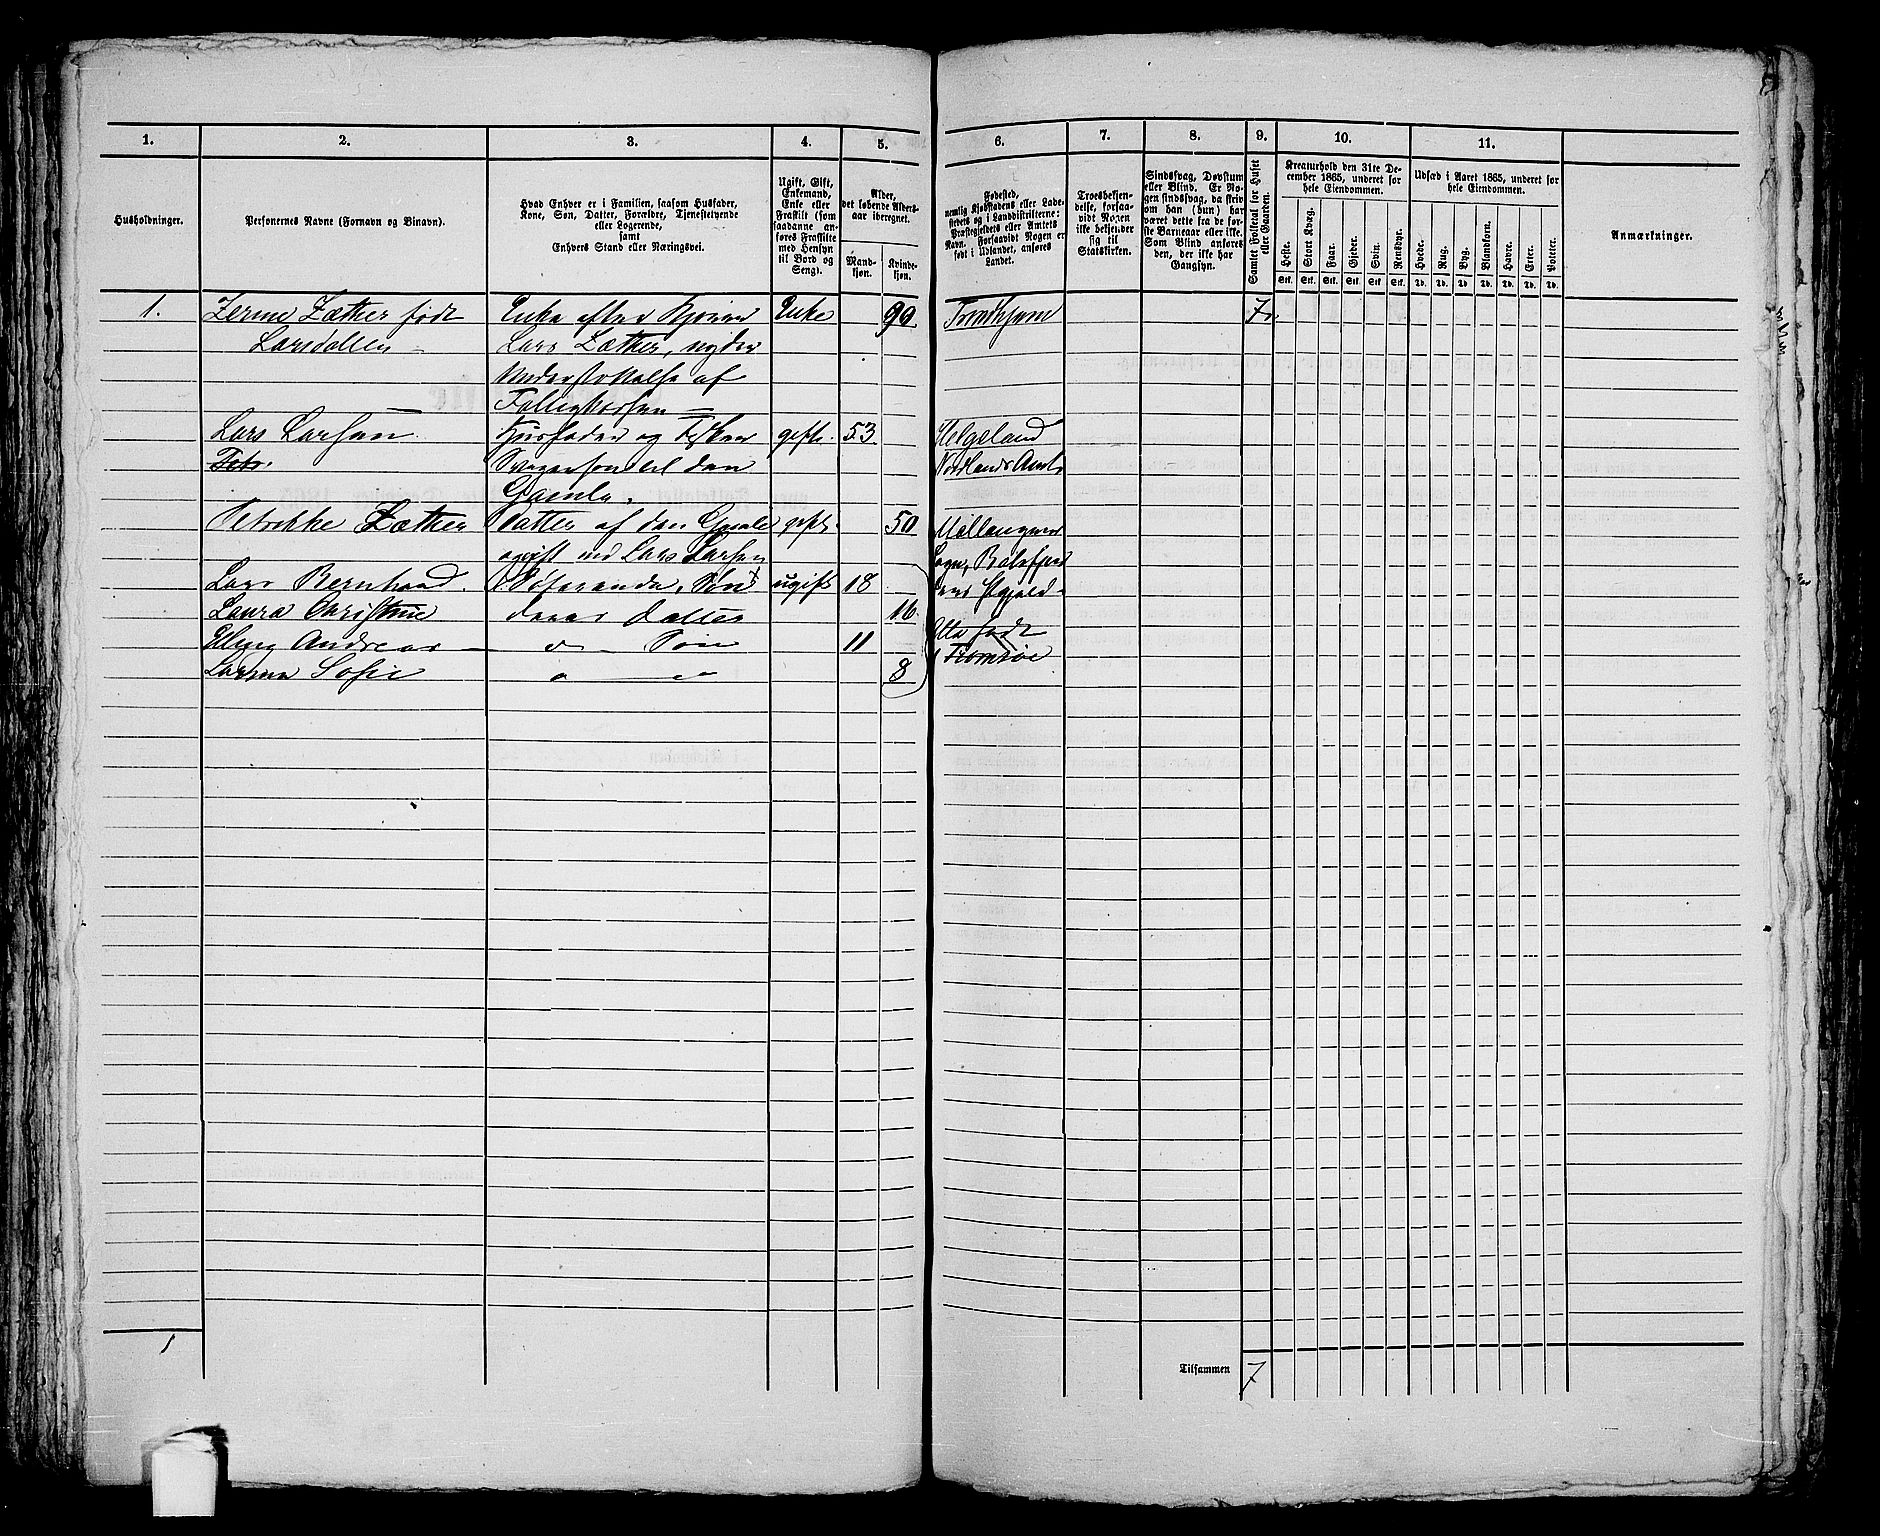 1. 2. 3. 4. 5. 6. 7. 8. 9. 10. 11.
Husholdninger.
Personernes Navne (Fornavn og Binavn).
Hvad Enhver er i Familien, saasom Husfader,
Kone, Søn, Datter, Forældre, Tjenestetyende
eller Logerende,
samt
Enhvers Stand eller Næringsvei.
Ugift, Gift,
Enkemand,
Enke eller
Fraskilt (som
saadanne an-
føres Fraskilte
med Hensyn
til Bord og
Seng).
Alder,
det løbende Alders-
aar iberegnet.
Mand-
kjøn.
Kvinde-
kjøn.
Fødested,
nemlig Kjøbstadens eller Lade-
stedets og i Landdistrikterne:
Præstegjeldets eller Amtets
Navn. Forsaavidt Nogen er
født i Udlandet, anføres
Landet.
Troesbekjen-
delse, forsaa-
vidt Nogen
ikke bekjender
sig til
Statskirken.
Sindssvag, Døvstum
eller Blind. Er No-
gen sindssvag, da skriv
om han (hun) har
været dette fra de før-
ste Barneaar eller ikke.
Som Blind anføres
den, der ikke har
Gangsyn.
Samlet Folketal for Huset
eller Gaarden.
Kreaturhold den 31te De-
cember 1865, underet for
hele Eiendommen.
Heste. Stort Kvæg. Faar. Gjeder. Svin. Rensdyr.
Stk. Stk. Stk. Stk. Stk. Stk.
Udsæd i Aaret 1865, underet for
hele Eiendommen.
Hvede. Rug. Byg. Blandkorn. Havre. Erter. Poteter.
Td. Td. Td. Td. Td. Td. Td.
Anmærkninger.
1. Zæther født Enke efter Enke 90 Trondhjem 7
Lars Zæther, nyder
Understøttelse af
Fattigkassen
Lars Larsen Husfader og Fisker gift. 53 Helgeland
Svigersøn til den Nordlands Amt
Gamle.
Petrikke Zæther Datter af den Gamle gift. 50
og gift med Lars Larsen
Lars Bernhard. Søn ugift 18
Laura Christine deres Datter 16.
Andreas Søn 11 Alle født
Sofie 8 i Tromsøe
1
Tilsammen 7